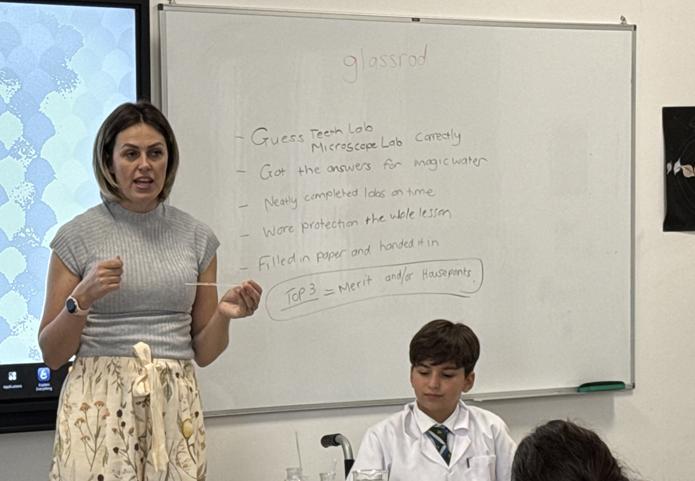 glassrod
- Guess Teeth Lab
Microscope Lab Correctly
- Got the answers for magic water
- Neatly completed labs on time
- Wore protection the whole lesson
- Filled in paper and handed it in
Top 3 = Merit and/or Housepoints
Applications
Explain
Everything